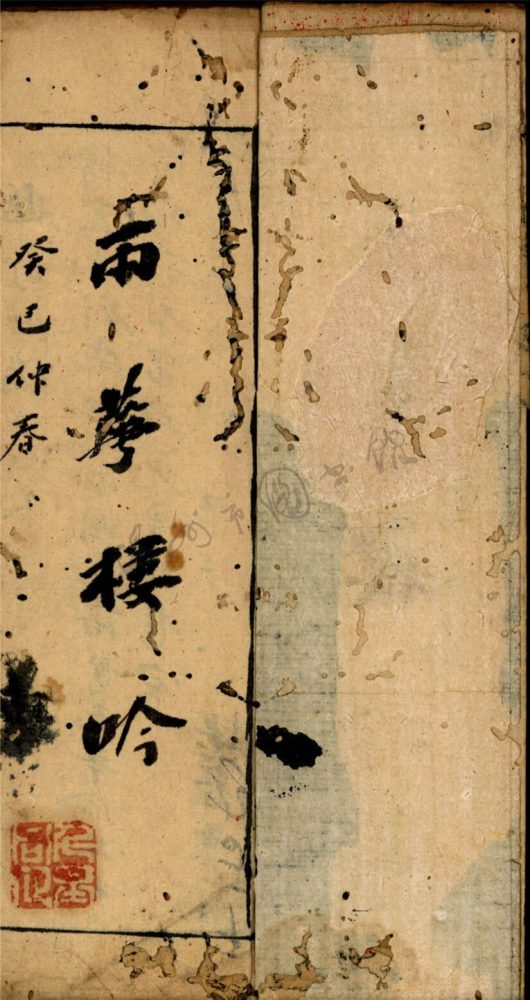 雨華樓吟
癸巳仲春